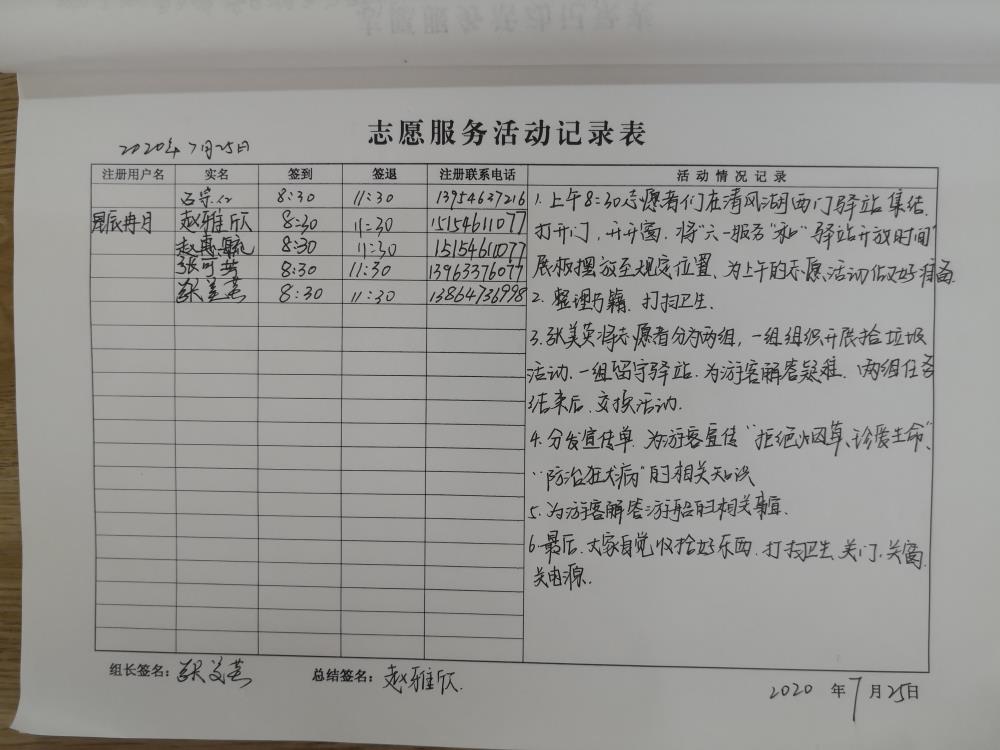 志愿服务活动记录表
2020年7月25日
注册用户名 实名 签到 签退 注册联系电话 活动情况记录
8:30 11:30 13954637216
星辰冉月 赵雅欣 8:30 11:30 15154611077
赵惠毓 8:30 11:30 15154611077
张可 8:30 11:30 13963376077
张美英 8:30 11:30 13864736998
1. 上午8:30志愿者们在清风湖西门驿站集结.
打开门,开开窗.将"六一服务"和"驿站开放时间"
展板摆放至规定位置.为上午的志愿活动做好准备.
2. 整理书籍.打扫卫生.
3. 张美英将志愿者分为两组,一组组织开展捡垃圾
活动.一组留守驿站.为游客解答疑难.两组任务
结束后.交换活动.
4. 分发宣传单.为游客宣传"拒绝烟草、珍爱生命"、
"防治狂犬病"的相关知识
5. 为游客解答游船的相关事宜.
6. 最后.大家自觉收拾好东西.打扫卫生.关门.关窗.
关电源.
组长签名: 张美英 总结签名: 赵雅欣.
2020 年 7 月 25日